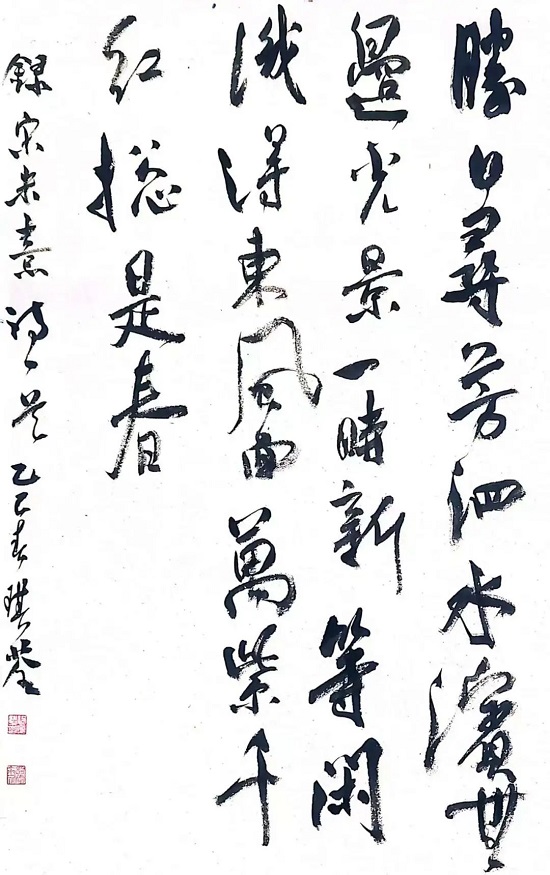 勝日尋芳泗水濱無
邊光景一時新等閑
識得東風面萬紫千
紅捴是春
錄宋朱熹詩一首乙巳春琪